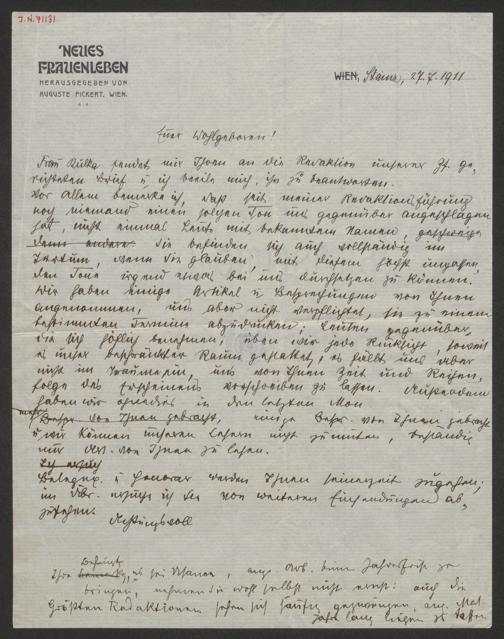 J.N. 71131
NEUES
FRAUENLEBEN
HERAUSGEGEBEN VON
AUGUSTE FICKERT, WIEN.
WIEN, Stainz, 27.7.1911
Euer Wohlgeboren!
Frau Kulka sendet mir Ihren an die Redaktion unserer Zt. ge-
richteten Brief u. ich beeile mich, ihn zu beantworten.
Vor Allem bemerke ich, daß seit meiner Redaktionsführung
noch niemand einen solchen Ton uns gegenüber angeschlagen
hat, nicht einmal Leute mit bekanntem Namen, geschweige
denn andere. Sie befinden sich auch vollständig im
Irrtum, wenn Sie glauben, mit diesem höchst
den Tone irgend etwas bei uns durchsetzen zu können.
Wir haben einige Artikel u. Besprechungen von Ihnen
angenommen, uns aber nicht verpflichtet, sie zu einem
bestimmten Termine abzudrucken; Leuten gegenüber,
die sich höflich benehmen, üben wir jede Rücksicht, soweit
es unser beschränkter Raum gestattet, es fällt uns aber
nicht im Traume ein, uns von Ihnen Zeit und Reihen-
folge des Erscheinens vorschreiben zu lassen. Außerdem
haben wir ohnedies in den letzten Mon.
Bespr. von Ihnen gebracht, einige Bespr. von Ihnen gebracht
u. wir können unseren Lesern nicht zumuten, beständig
nur Art. von Ihnen zu lesen.
Ich ersuche
Belegex. u. Honorar werden Ihnen seinerzeit zugehen;
im Übr. ersuche ich Sie von weiteren Einsendungen ab-
zusehen.
Achtungsvoll
Ihre
es sei Usance, ang. Arb. binnen Jahresfrist zu
bringen, nehmen Sie wohl selbst nicht ernst: auch die
Größten Redaktionen sehen sich häufig gezwungen, ang. Mat.
Jahre lang liegen zu lassen